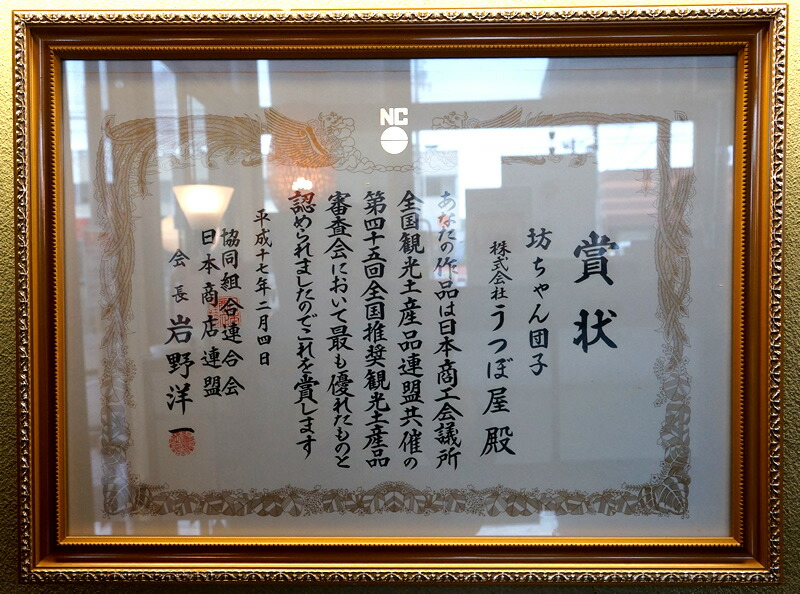 NC
賞状
坊ちゃん団子
株式会社うつぼ屋殿
あなたの作品は日本商工会議所
全国観光土産品連盟共催の
第四十五回全国推奨観光土産品
審査会において最も優れたものと
認められましたのでこれを賞します
平成十七年二月四日
協同組合連合会
日本商店連盟
会長 岩野洋一